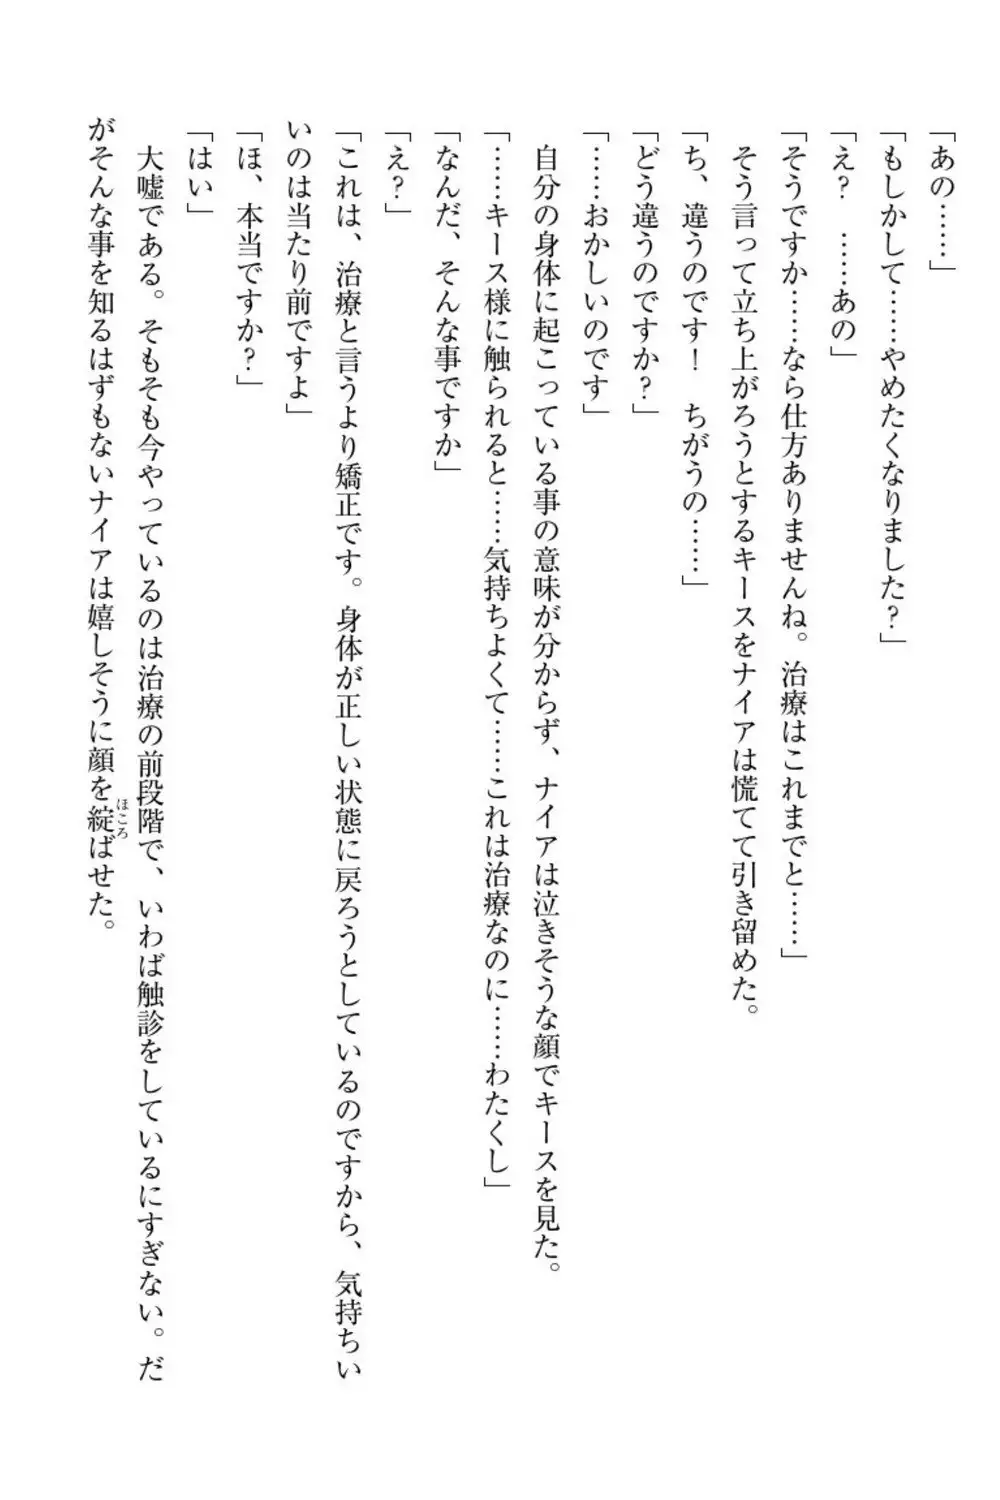 「あの……」
「もしかして……やめたくなりました？」
「え？　……あの」
「そうですか……なら仕方ありませんね。治療はこれまでと……」
そう言って立ち上がろうとするキースをナイアは慌てて引き留めた。
「ち、違うのです！　ちがうの……」
「どう違うのですか？」
「……おかしいのです」
自分の身体に起こっている事の意味が分からず、ナイアは泣きそうな顔でキースを見た。
「……キース様に触られると……気持ちよくて……これは治療なのに……わたくし」
「なんだ、そんな事ですか」
「え？」
「これは、治療と言うより矯正です。身体が正しい状態に戻ろうとしているのですから、気持ちい
いのは当たり前ですよ」
「ほ、本当ですか？」
「はい」
大嘘である。そもそも今やっているのは治療の前段階で、いわば触診をしているにすぎない。だ
がそんな事を知るはずもないナイアは嬉しそうに顔を綻ばせた。
ほころ